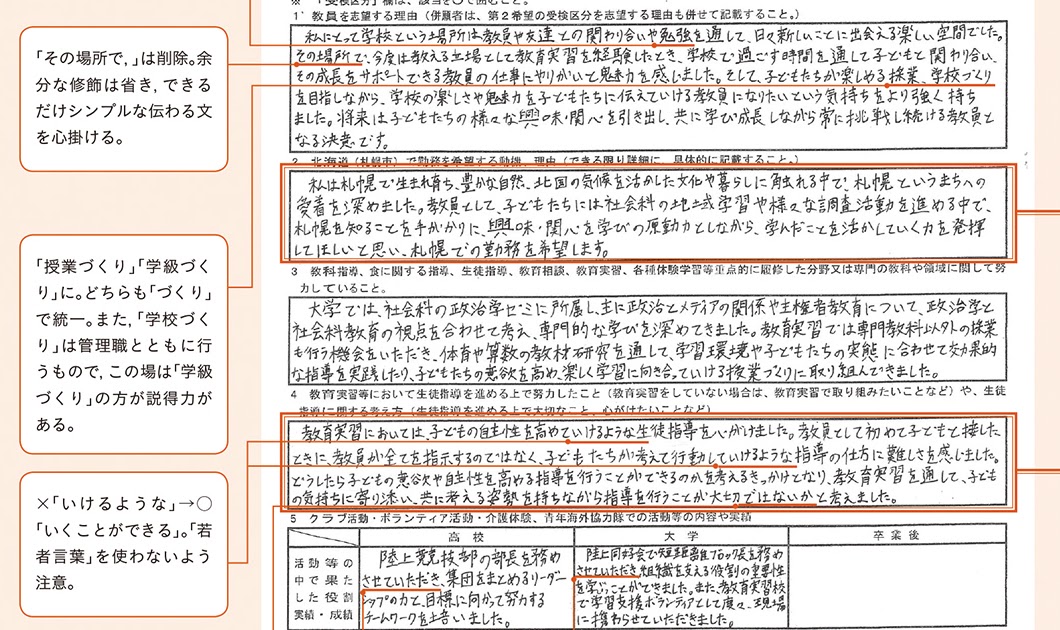 ※ 「受検区分」欄は、該当を○で囲むこと。
1 教員を志望する理由（併願者は、第２希望の受検区分を志望する理由も併せて記載すること。）
私にとって学校という場所は教員や友達との関わり合いや勉強を通して、日々新しいことに出会える楽しい空間でした。
その場所で、今度は教える立場として教育実習を経験したとき、学校で過ごす時間を通して子どもと関わり合い、
その成長をサポートできる教員の仕事にやりがいと魅力を感じました。そして、子どもたちが楽しめる授業、学校づくり
を目指しながら、学校の楽しさや魅力を子どもたちに伝えていける教員になりたいという気持ちをより強く持ち
ました。将来は子どもたちの様々な興味・関心を引き出し、共に学び成長しながら常に挑戦し続ける教員と
なる決意です。
2 北海道（札幌市）で勤務を希望する動機、理由（できる限り詳細に、具体的に記載すること。）
私は札幌で生まれ育ち、豊かな自然、北国の気候を活かした文化や暮らしに触れる中で、札幌というまちへの
愛着を深めました。教員として、子どもたちには社会科の地域学習や様々な調査活動を進める中で、
札幌を知ることを手がかりに、興味・関心を学びの原動力としながら、学んだことを活かしていく力を発揮
してほしいと思い、札幌での勤務を希望します。
3 教科指導、食に関する指導、生徒指導、教育相談、教育実習、各種体験学習等重点的に履修した分野又は専門の教科や領域に関して努
力していること。
大学では、社会科の政治学ゼミに所属し、主に政治とメディアの関係や主権者教育について、政治学と
社会科教育の視点を合わせて考え、専門的な学びを深めてきました。教育実習では専門教科以外の授業
も行う機会をいただき、体育や算数の教材研究を通して、学習環境や子どもたちの実態に合わせて効果的
な指導を実践したり、子どもたちの意欲を高め、楽しく学習に向き合っていける授業づくりに取り組んできました。
4 教育実習等において生徒指導を進める上で努力したこと（教育実習をしていない場合は、教育実習で取り組みたいことなど）や、生徒
指導に関する考え方（生徒指導を進める上で大切なこと、心がけたいことなど）
教育実習においては、子どもの自主性を高めていけるような生徒指導を心がけました。教員として初めて子どもと接した
ときに、教員が全てを指示するのではなく、子どもたちが考えて行動していけるような指導の仕方に難しさを感じました。
どうしたら子どもの意欲や自主性を高める指導を行うことができるのかを考えるきっかけとなり、教育実習を通して、子ども
の気持ちに寄り添い、共に考える姿勢を持ちながら指導を行うことが大切ではないかと考えました。
5 クラブ活動・ボランティア活動・介護体験、青年海外協力隊での活動等の内容や実績
高校
大学
卒業後
活動等の
中で果た
した役割
実績・成績
陸上競技部の部長を務め
させていただき、集団をまとめるリーダー
シップの力と、目標に向かって努力する
チームワークを培いました。
陸上同好会で短距離ブロック長を務め
させていただき、組織を支える役割の重要性
を学ぶことができました。また、教育実習校
で学習支援ボランティアとして度々、現場
に携わらせていただきました。
「その場所で，」は削除。余
分な修飾は省き，できる
だけシンプルな伝わる文
を心掛ける。
「授業づくり」「学級づく
り」に。どちらも「づくり」
で統一。また，「学校づく
り」は管理職とともに行
うもので，この場は「学級
づくり」の方が説得力が
ある。
×「いけるような」→○
「いくことができる」。「若
者言葉」を使わないよう
注意。